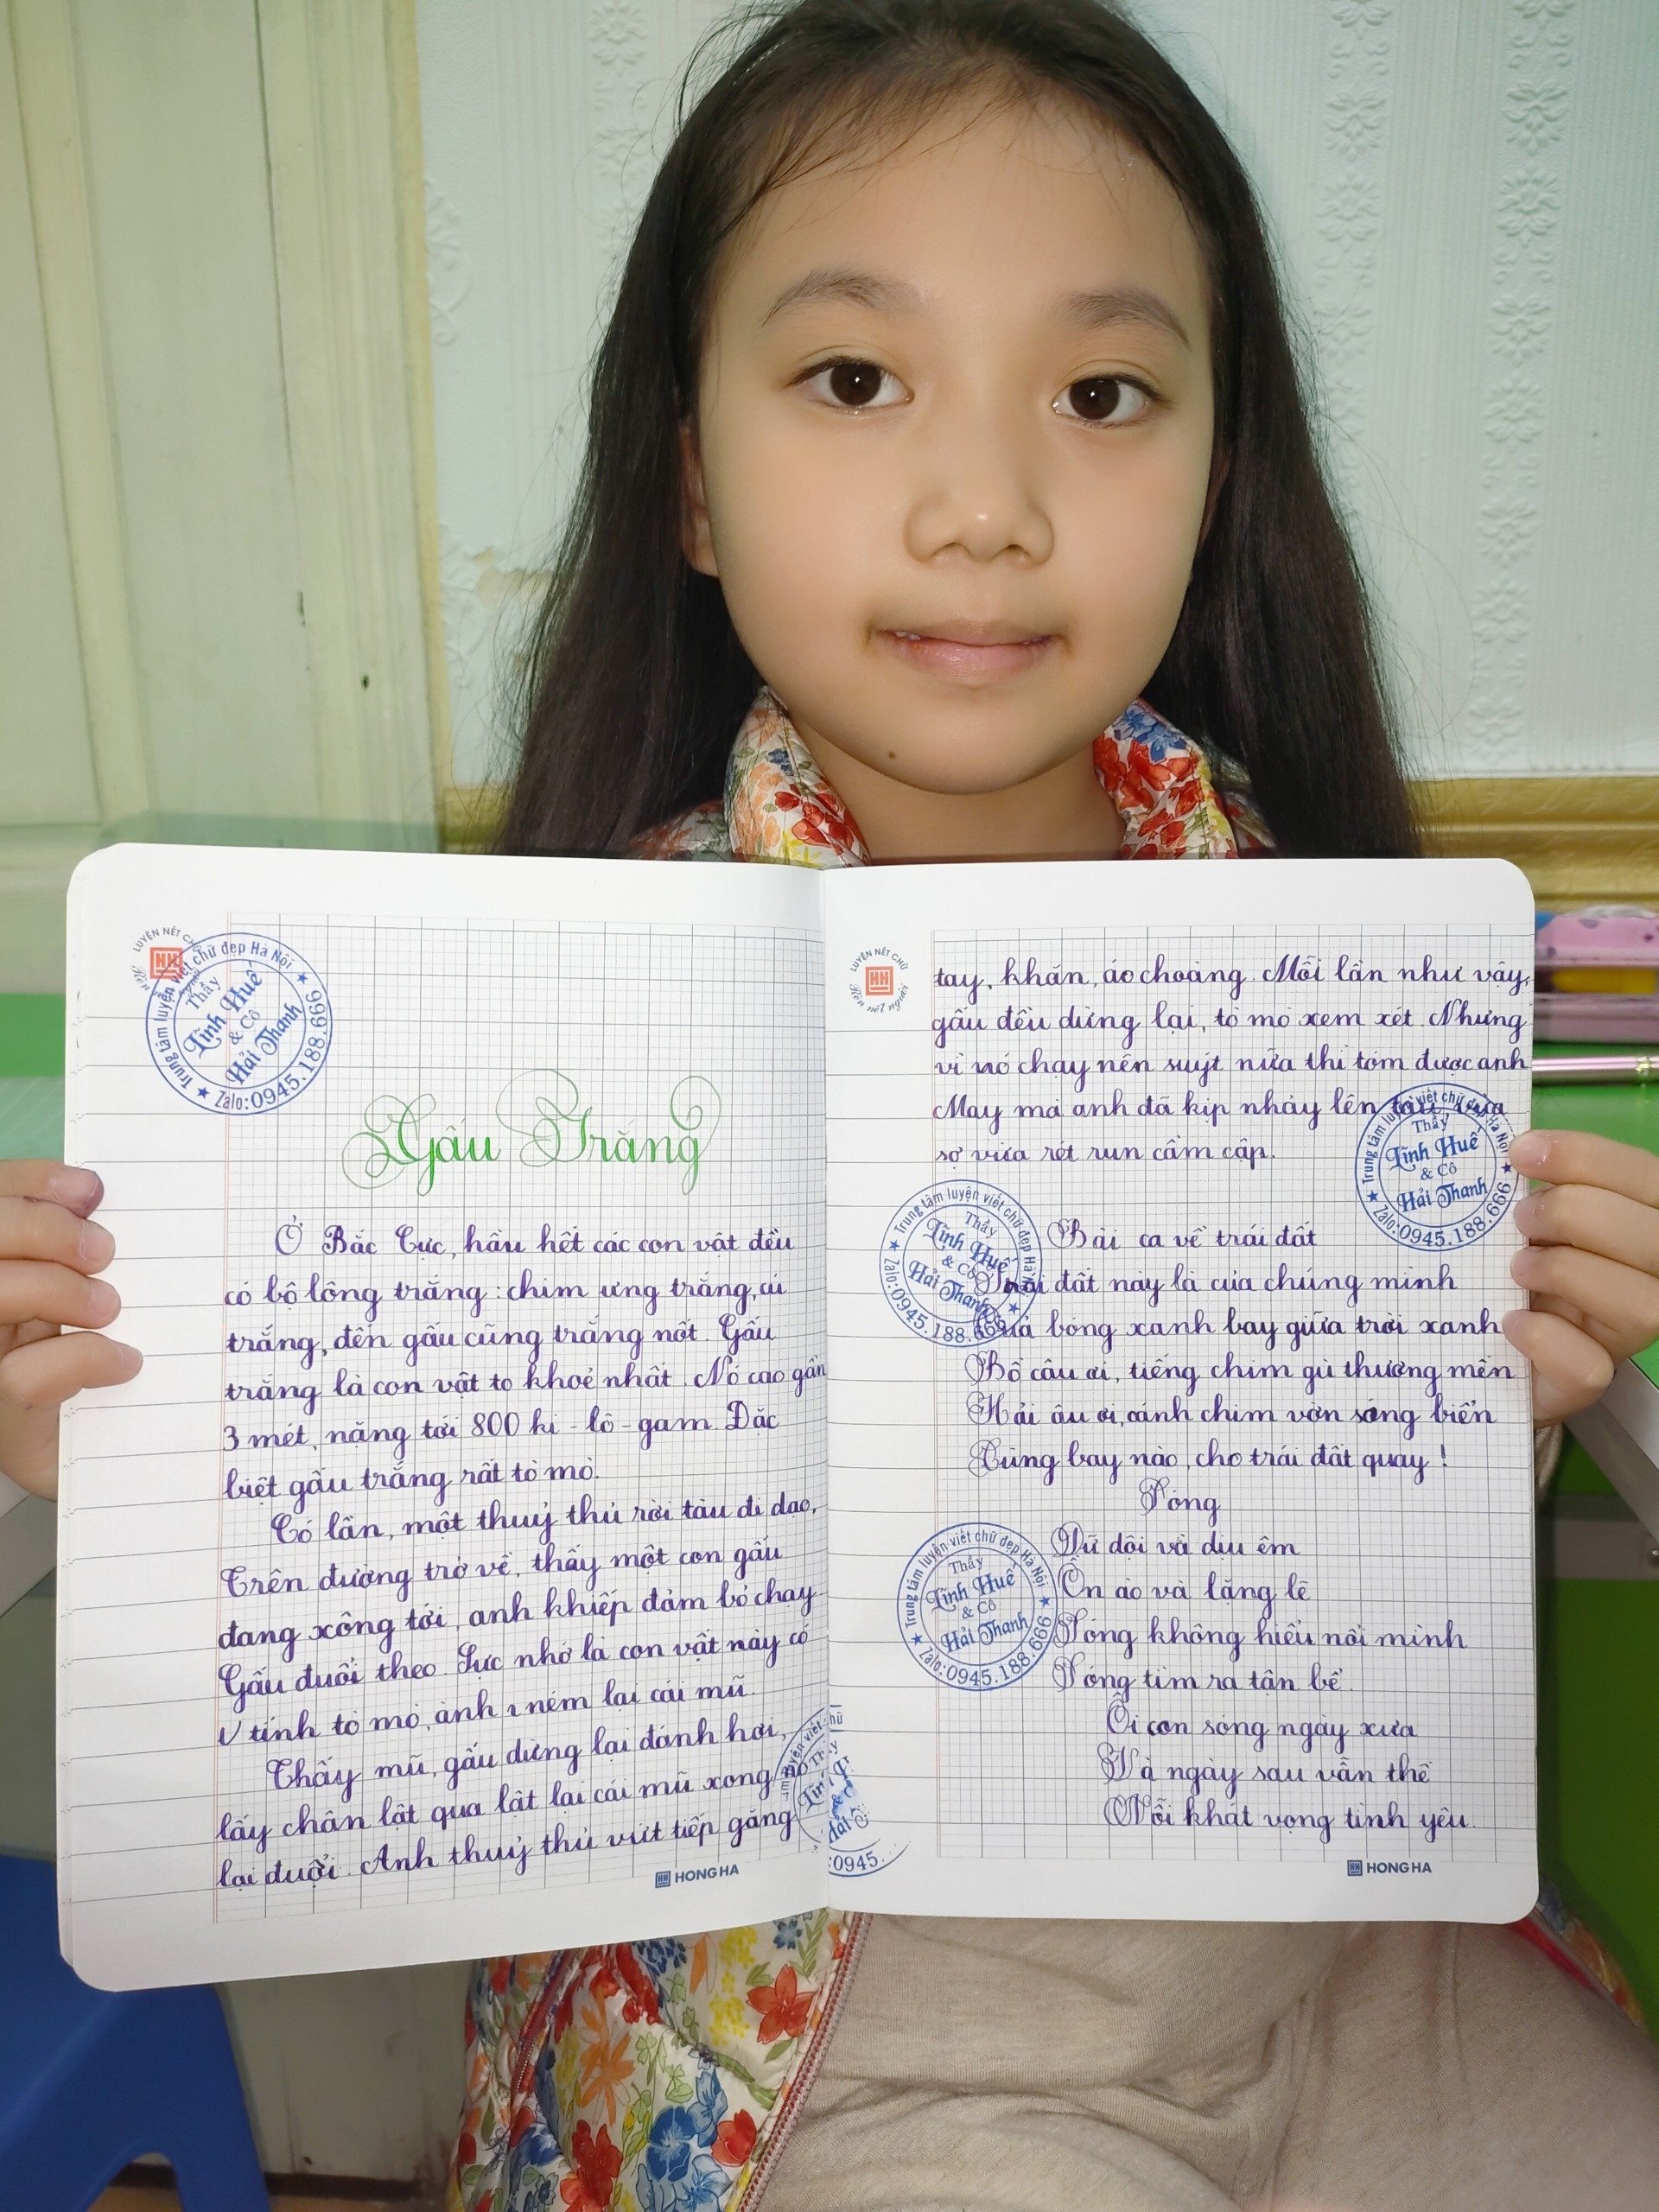 LUYỆN NÉT CHỮ
HH
Trung tâm luyện viết chữ đẹp Hà Nội
Thầy
Tĩnh Huê
& Cô
Hải Thanh
Zalo:0945.188.666
Gấu Trắng
Ở Bắc Cực, hầu hết các con vật đều
có bộ lông trắng: chim ưng trắng, cú
trắng, đến gấu cũng trắng nốt. Gấu
trắng là con vật to khoẻ nhất. Nó cao gần
3 mét, nặng tới 800 ki-lô-gam. Đặc
biệt gấu trắng rất tò mò.
Có lần, một thuỷ thủ rời tàu đi dạo,
Trên đường trở về, thấy một con gấu
đang xông tới, anh khiếp đảm bỏ chạy
Gấu đuổi theo. Sực nhớ là con vật này có
tính tò mò, anh ném lại cái mũ.
Thấy mũ, gấu dừng lại đánh hơi,
lấy chân lật qua lật lại cái mũ xong nó
lại đuổi. Anh thuỷ thủ vứt tiếp găng
HH HONG HA
0945.
LUYỆN NÉT CHỮ
HH
Rèn nết người
tay, khăn, áo choàng. Mỗi lần như vậy,
gấu đều dừng lại, tò mò xem xét. Nhưng
vì nó chạy nên suýt nữa thì tóm được anh
May mà anh đã kịp nhảy lên tàu, vừa
sợ vừa rét run cầm cập.
Trung tâm luyện viết chữ đẹp Hà Nội
Thầy
Tĩnh Huê
& Cô
Hải Thanh
Zalo:0945.188.666
Trung tâm luyện viết chữ đẹp Hà Nội
Thầy
Tĩnh Huê
& Cô
Hải Thanh
Zalo:0945.188.666
Bài ca về trái đất
Trái đất này là của chúng mình
Quả bóng xanh bay giữa trời xanh
Bồ câu ơi, tiếng chim gù thương mến
Hải âu ơi, cánh chim vờn sóng biển
Cùng bay nào, cho trái đất quay!
Sóng
Dữ dội và dịu êm
Ồn ào và lặng lẽ
Sóng không hiểu nổi mình
Sóng tìm ra tận bể.
Ôi con sóng ngày xưa
Và ngày sau vẫn thế
Nỗi khát vọng tình yêu
Trung tâm luyện viết chữ đẹp Hà Nội
Thầy
Tĩnh Huê
& Cô
Hải Thanh
Zalo:0945.188.666
HH HONG HA